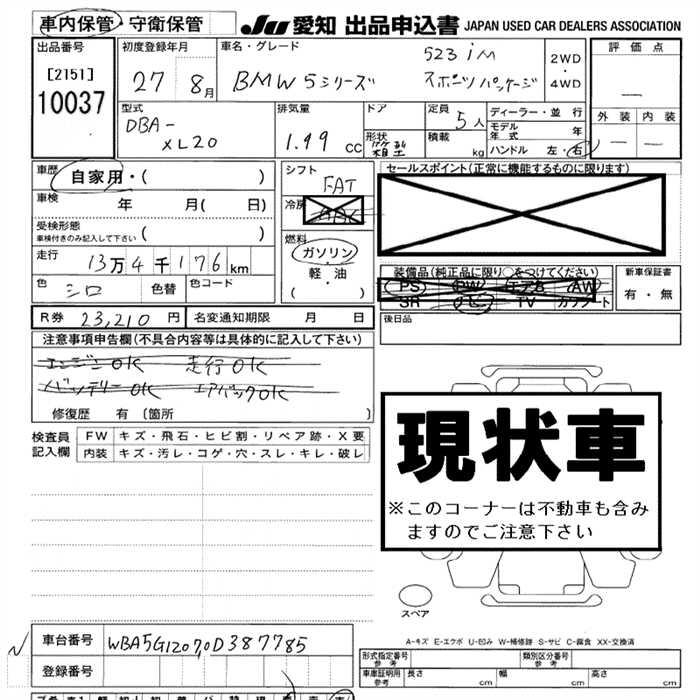 車内保管・守衛保管 JU 愛知 出品申込書 JAPAN USED CAR DEALERS ASSOCIATION
出品番号 初度登録年月 車名・グレード 評価点
[2151] 27 8月 BMW 5シリーズ 523iM スポーツパッケージ 2WD・4WD —
10037
型式 排気量 ドア 定員 ディーラー・並行 外装 内装
DBA- XL20 1.99 CC 形状 5人 積載 kg モデル年式 年 — —
ハンドル 左・右
車歴 自家用・( ) シフト FAT セールスポイント(正常に機能するものに限ります)
車検 年 月( 日) 冷房
受検形態 車検付きのみ記入して下さい ( ) 燃料
走行 13万4千176km ガソリン・軽油 ( ) 装備品(純正品に限り○をつけてください) 新車保証書
色 シロ 色替 色コード PS PW エアB AW 有・無
SR ナビ TV カワシート
R券 23,210円 名変通知期限 月 日 後日品
注意事項申告欄(不具合内容等は具体的に記入して下さい)
エンジンOK 走行OK
バッテリーOK エアバックOK
修復歴 有〔箇所 〕
検査員記入欄 FW キズ・飛石・ヒビ割・リペア跡・X要
内装 キズ・汚レ・コゲ・穴・スレ・キレ・破レ
現状車
※このコーナーは不動車も含み
ますのでご注意下さい
スペア
A-キズ E-エクボ U-凹み W-補修跡 S-サビ C-腐食 XX-交換済
車台番号 WBA5G12070D387785
登録番号
形式指定番号 参考 類別区分番号 参考
車庫証明用 参考 長さ cm 幅 cm 高さ cm